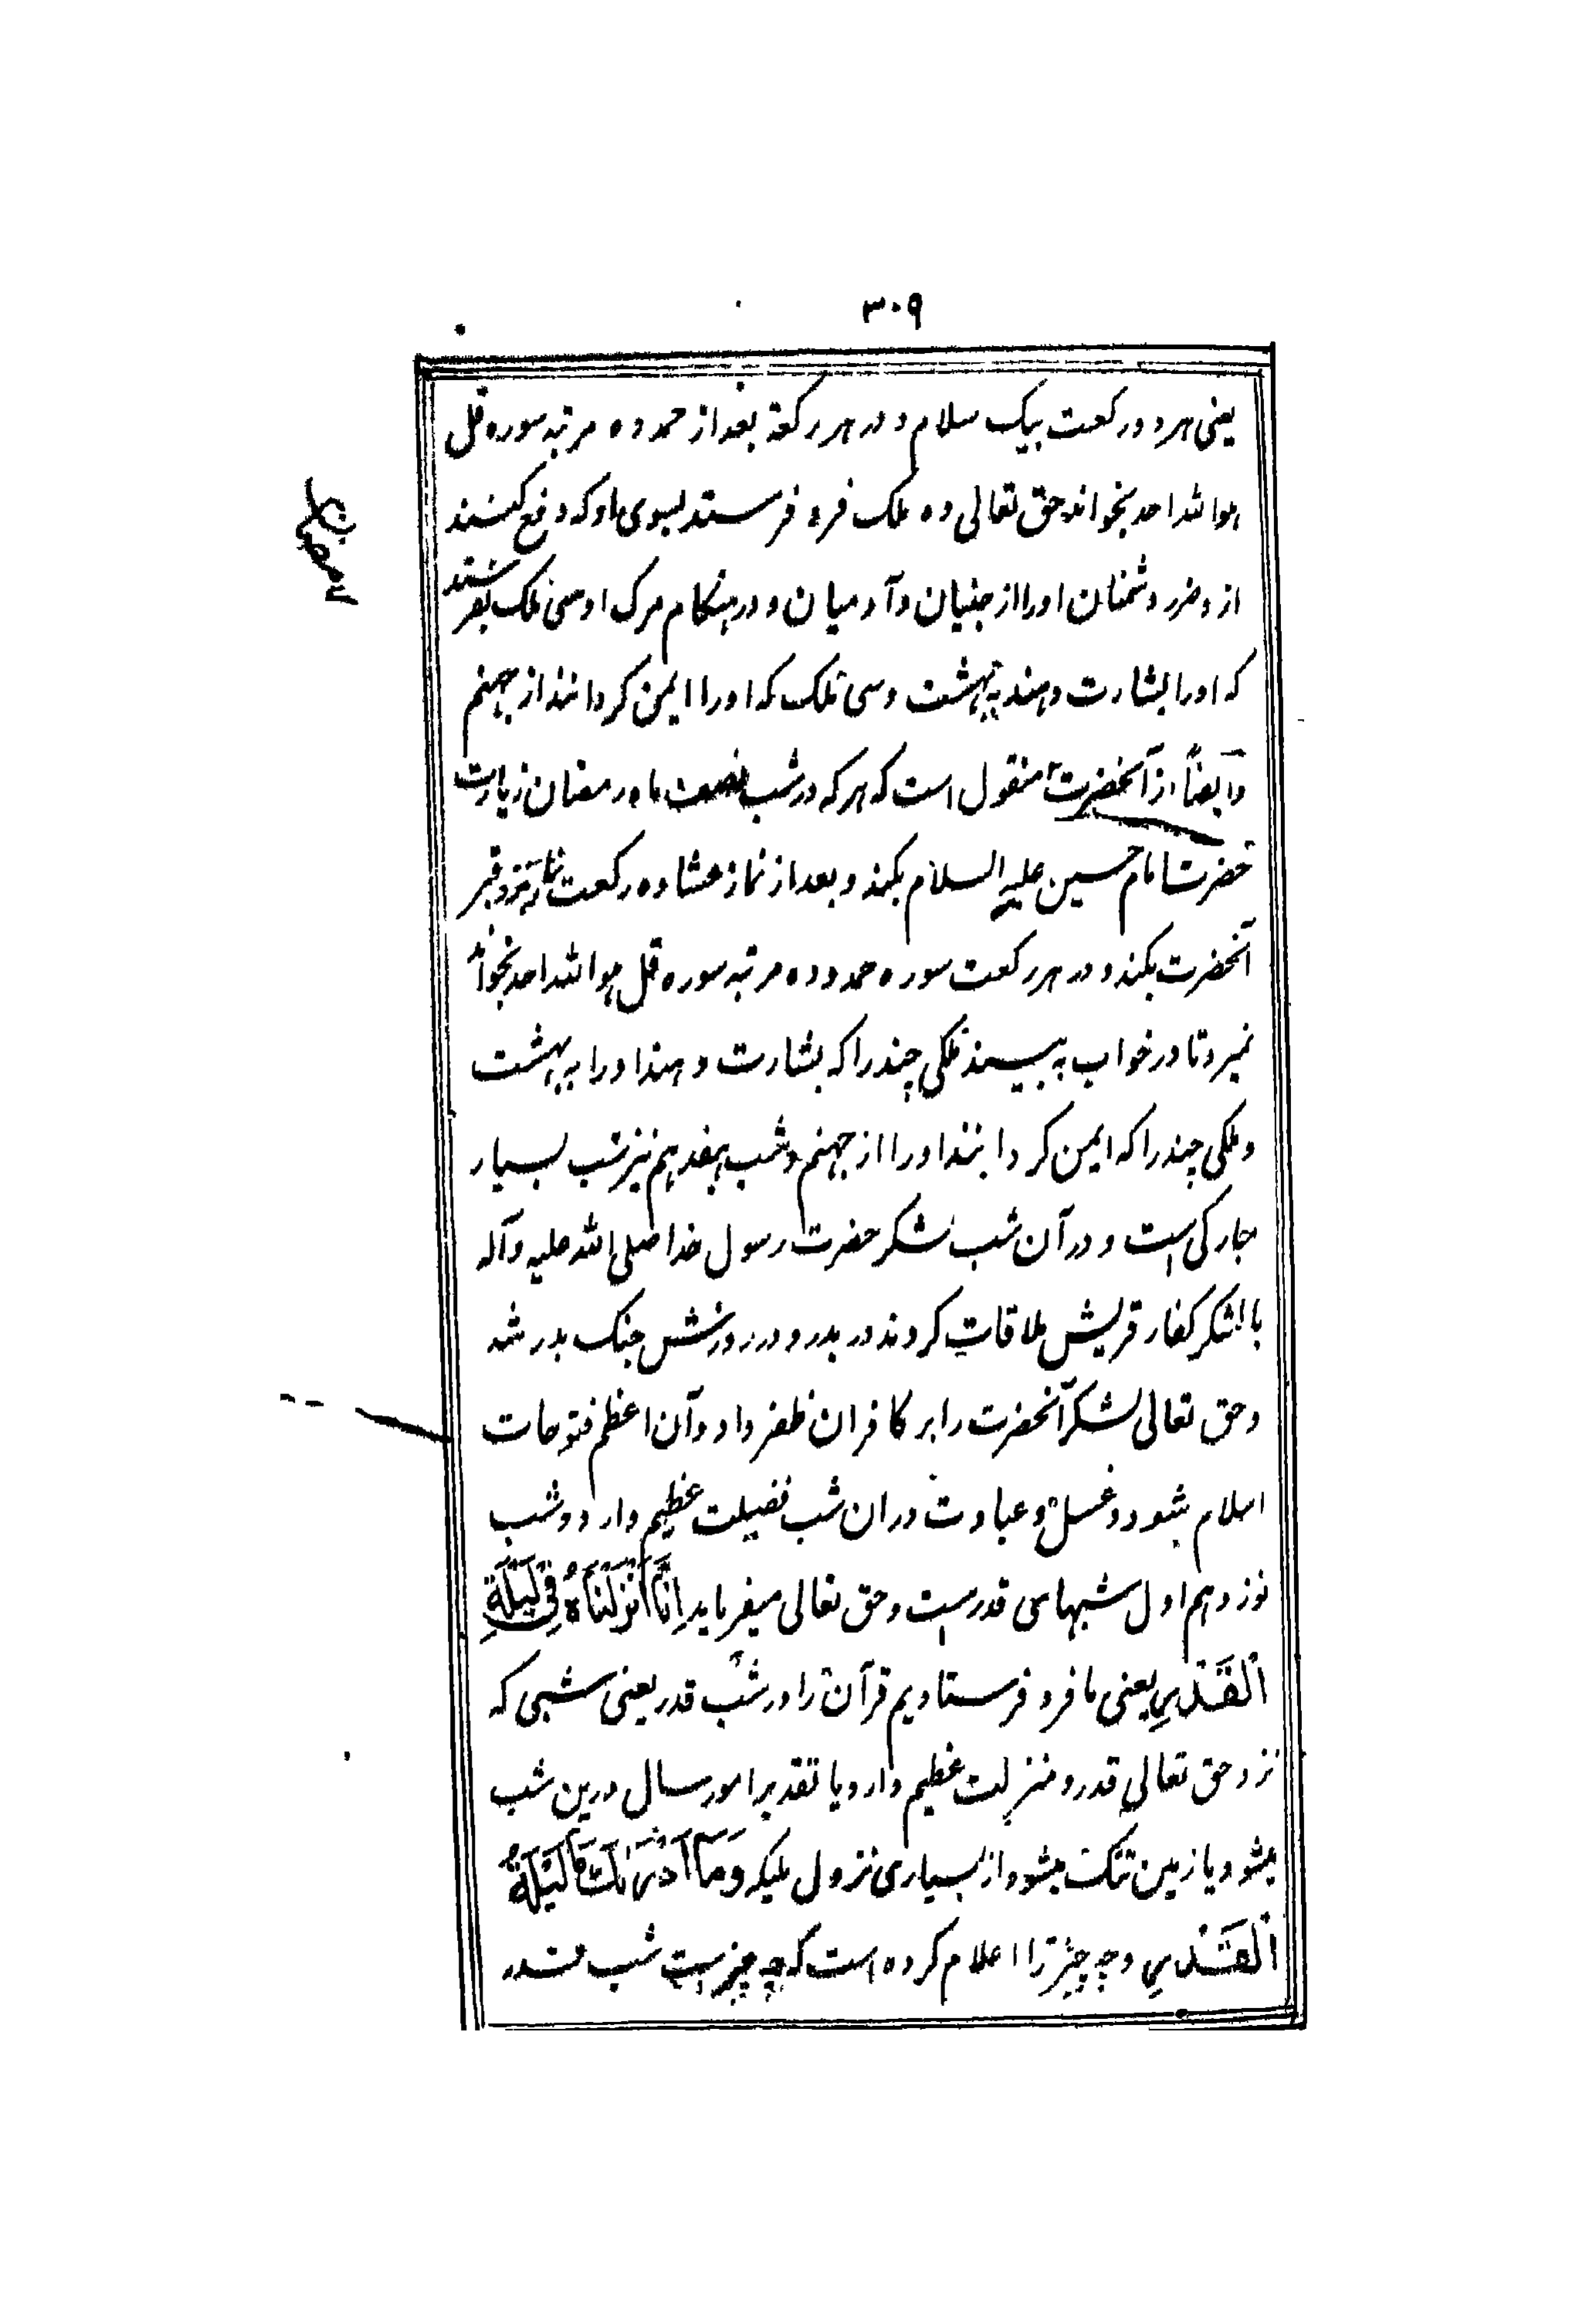 ۳۰۹
یعنی هر دو رکعت بیک سلام و در هر رکعة بعد از حمد ده مرتبه سوره قل
هو الله احد بخواند حق تعالی ده ملک فرو فرستد بسوی او که دفع کنند
از و ضرر دشمنان او را از جنیان و آدمیان و در هنکام مرک او سی ملک بفرستند
که او را بشارت دهند به بهشت و سی ملک که او را ایمن کردانند از جهنم
و ایضاً از آنحضرت منقول است که هر که در شب نصف ماه رمضان زیارت
حضرت امام حسین علیه السلام بکند و بعد از نماز عشا ده رکعت نماز نزد قبر
آنحضرت بکند و در هر رکعت سوره حمد و ده مرتبه سوره قل هو الله احد بخواند
نمیرد تا در خواب به بیند ملکی چند را که بشارت دهند او را به بهشت
و ملکی چند را که ایمن کردانند او را از جهنم و شب هفدهم نیز شب بسیار
مبارکی است و در آن شب لشکر حضرت رسول خدا صلی الله علیه و آله
با لشکر کفار قریش ملاقات کردند در بدر و در روزش جنک بدر شد
و حق تعالی لشکر آنحضرت را بر کافران ظفر داد و آن اعظم فتوحات
اسلام بشود و غسل و عبادت در ان شب فضیلت عظیم دارد و شب
نوزدهم اول شبهای قدرست و حق تعالی میفرماید اِنَّا اَنْزَلْنَاهُ فِی لَیْلَةِ
الْقَدْرِ یعنی ما فرو فرستادیم قرآن را در شب قدر یعنی شبی که
نزد حق تعالی قدر و منزلت عظیم دارد یا تقدیر امور سال درین شب
میشود یا زمین تنک میشود از بسیاری نزول ملیکه وَمَا اَدْرٰىكَ مَا لَیْلَةُ
الْقَدْرِ و چه چیز ترا اعلام کرده است که چه چیزست شب قدر